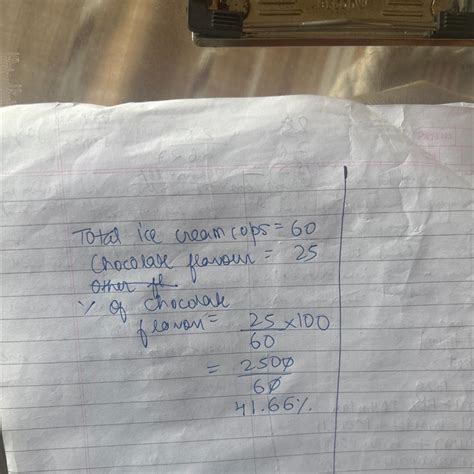 Total ice cream cops = 60
Chocolate flavour = 25
Other fl.
% of chocolate
flavour = 25 × 100
60
= 2500
60
41.66%